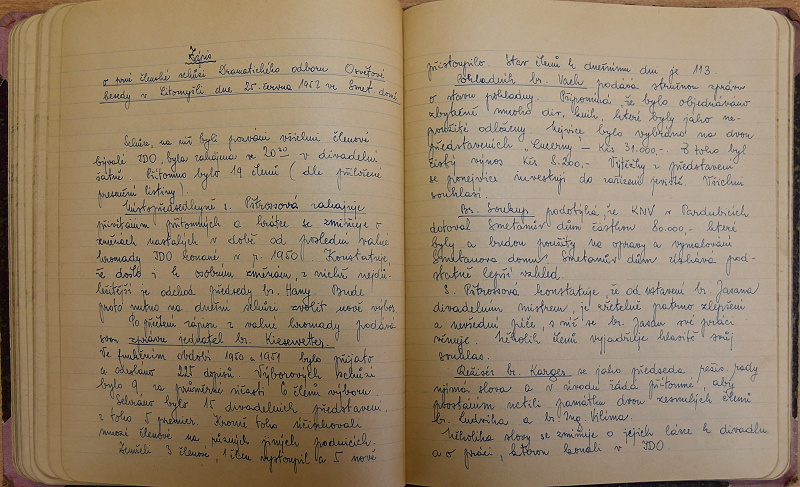 Zápis
o první členské schůzi Dramatického odboru Osvětové
besedy v Litomyšli dne 25. června 1952 ve Smet. domě
Schůze, na niž byli pozváni všichni členové
bývalé JDO, byla zahájena ve 20³⁰ v divadelní
šatně. Přítomno bylo 19 členů (dle přiložené
presenční listiny).
Místopředsedkyně s. Pitrossová zahajuje
přivítáním přítomných a krátce se zmiňuje o
změnách nastalých v době od poslední valné
hromady JDO konané v r. 1950. Konstatuje,
že došlo i k osobním změnám, z nichž nejdů-
ležitější je odchod předsedy br. Hany. Bude
proto nutno na dnešní schůzi zvolit nový výbor.
Po přečtení zápisu z valné hromady podává
svou zprávu jednatel br. Kiesewetter.
Ve funkčním období 1950 a 1951 bylo přijato
a odesláno 225 dopisů. Výborových schůzí
bylo 9 za průměrné účasti 6 členů výboru.
Sehráno bylo 15 divadelních představení
z toho 5 premier. Kromě toho účinkovali
mnozí členové na různých jiných podnicích.
Zemřeli 3 členové, 1 člen vystoupil a 5 nově
přistoupilo. Stav členů k dnešnímu dni je 113.
Pokladník br. Vach podává stručnou zprávu
o stavu pokladny. Připomíná, že bylo objednáváno
zbytečně mnoho div. knih, které byly jako ne-
použité odloženy. Nejvíce bylo vybráno na dvou
představeních „Lucerny – Kčs 31.000,- Z toho byl
čistý výnos Kčs 8.200,- Výtěžky z představení
se ponejvíce investují do zařízení jeviště. Všichni
souhlasí.
Br. Soukup podotýká, že KNV v Pardubicích
dotoval Smetanův dům částkou 80.000,- které
byly a budou použity na opravy a vymalování
Smetanova domu. Smetanův dům získává pod-
statně lepší vzhled.
S. Pitrossová konstatuje, že od ustavení br. Jasana
divadelním mistrem, je zřetelně patrno zlepšení
a nevšední péče, s níž se br. Jasan své práci
věnuje. Několik členů vyjadřuje hlasitě svůj
souhlas.
Režisér br. Karges se jako předseda režis. rady
ujímá slova a v úvodu žádá přítomné, aby
povstáním uctili památku dvou zesnulých členů
br. Ludvíka a br. Ing. Vilíma.
Několika slovy se zmiňuje o jejich lásce k divadlu
a o práci, kterou konali v JDO.